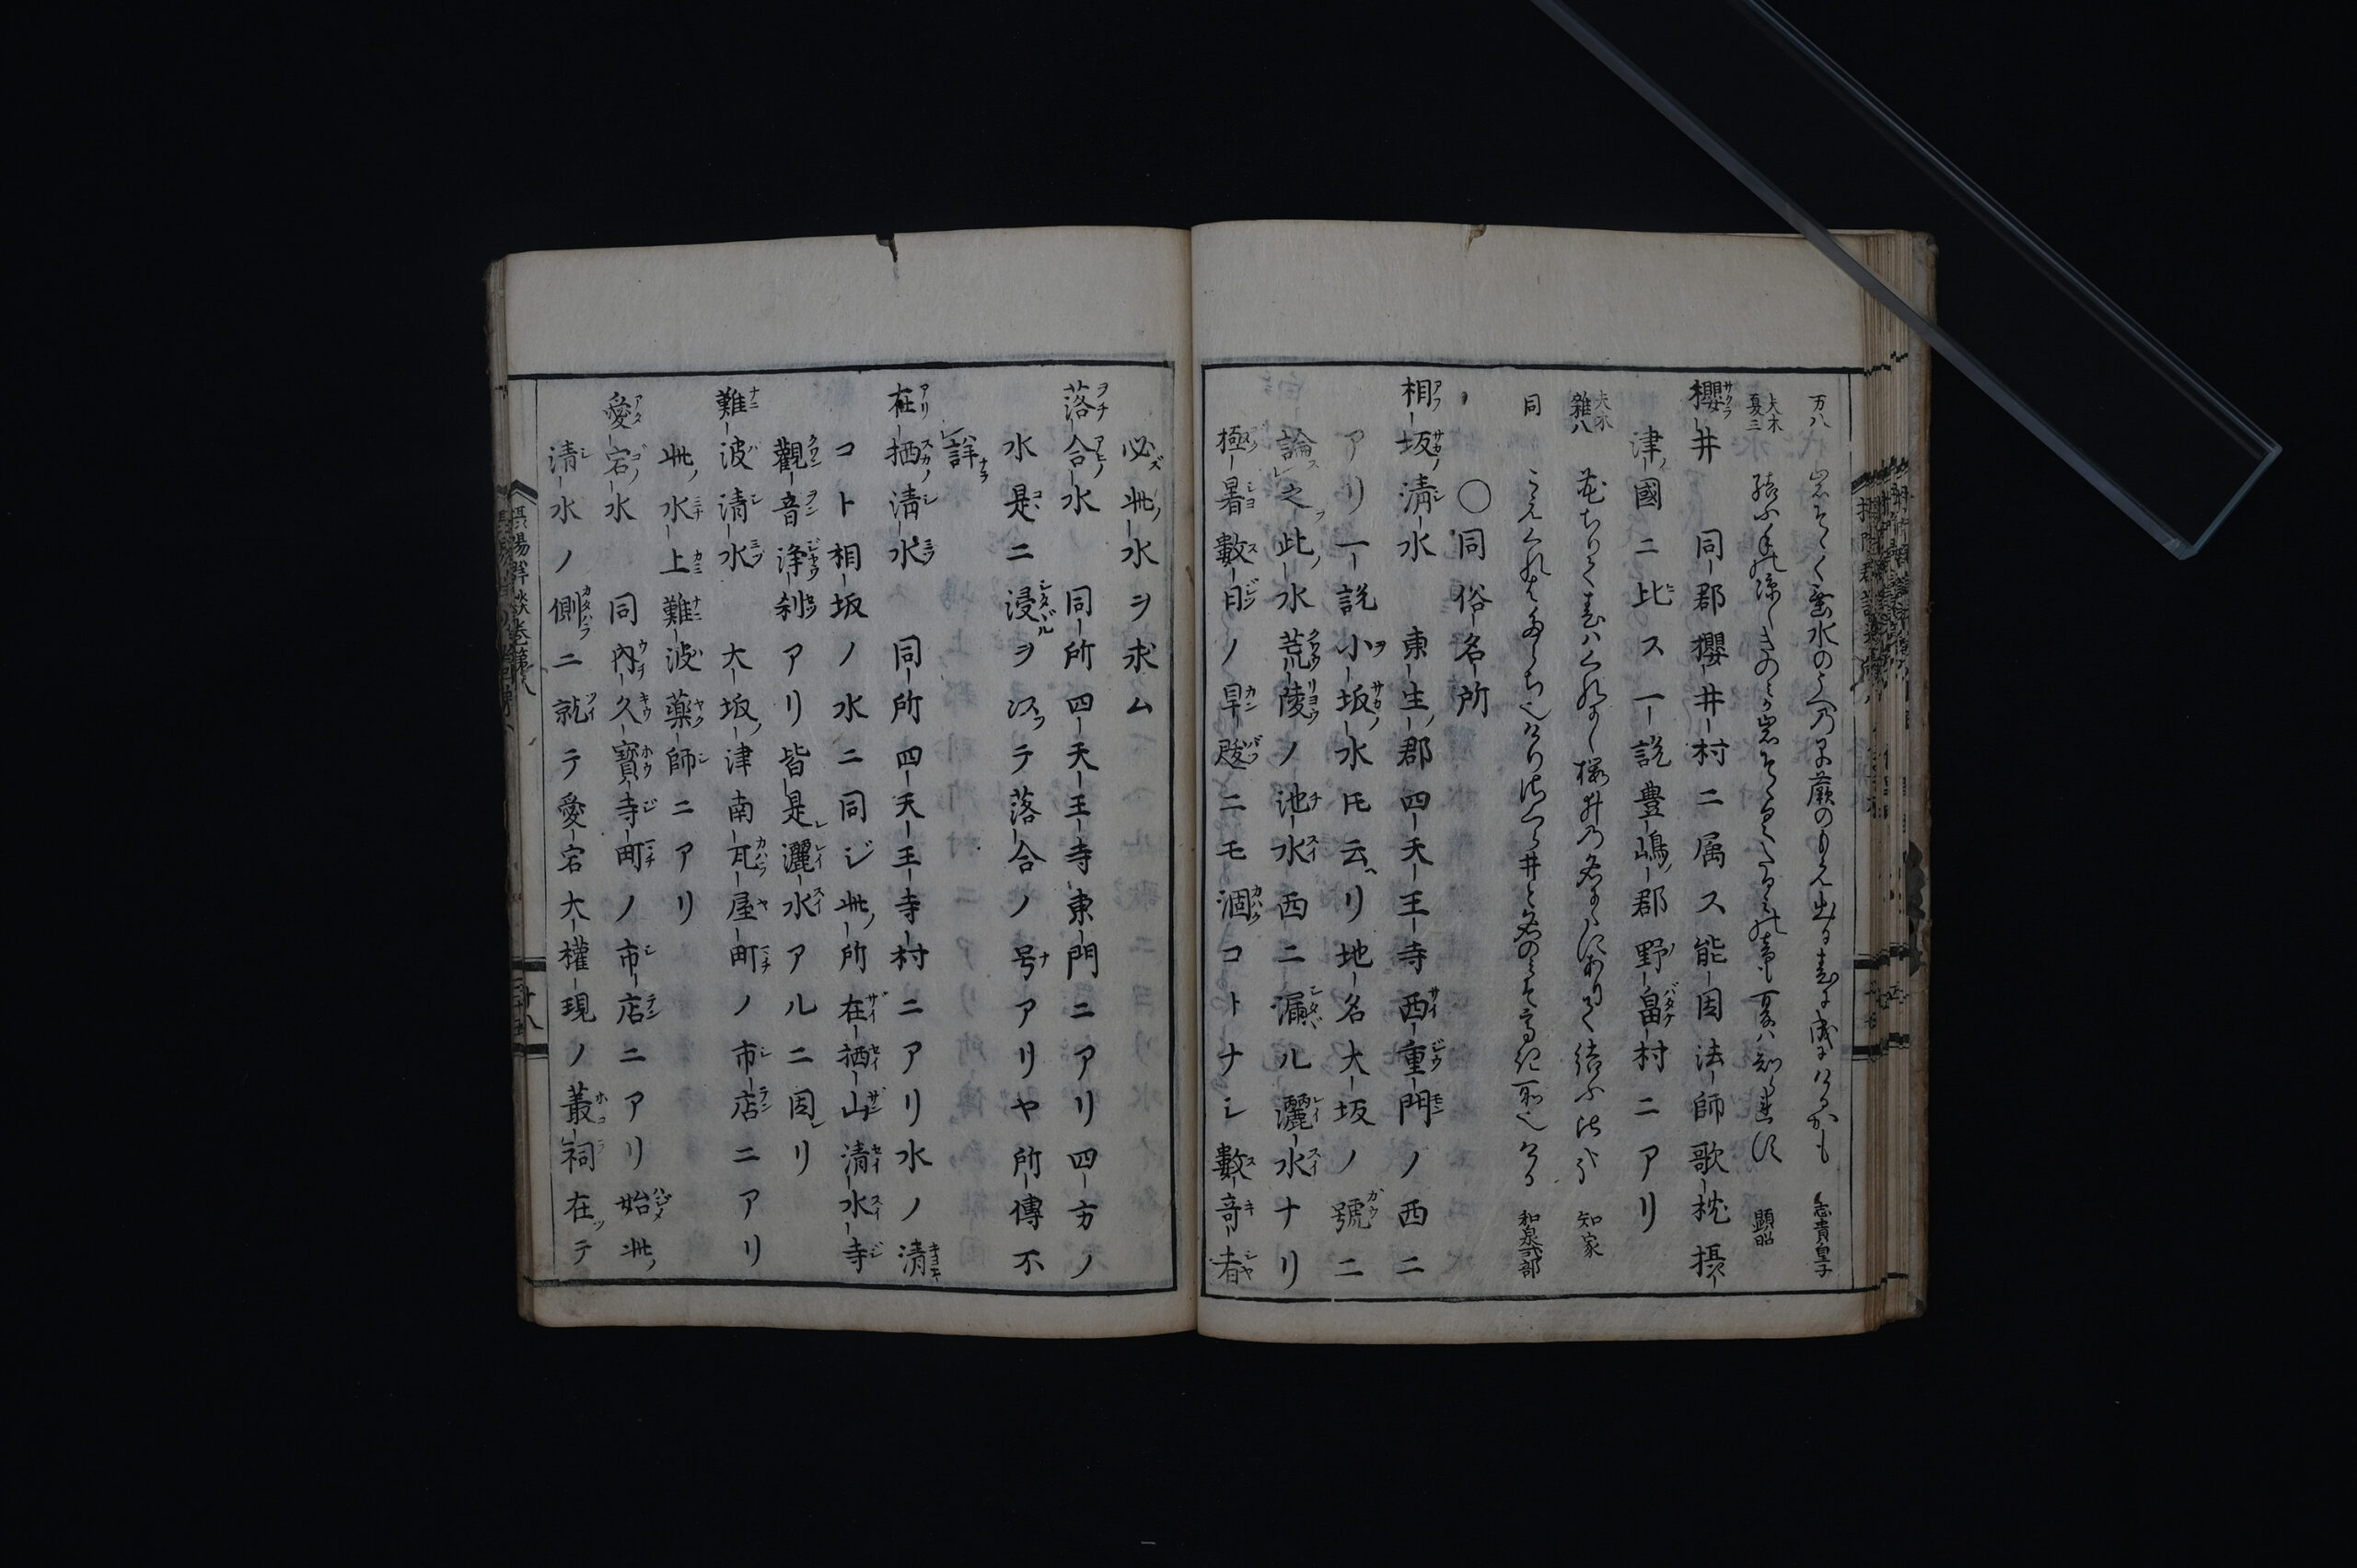 万八 岩そゝく垂水のうへの早蕨のもえ出る春に成にけるかも 志貴皇子
夫木 夏三 結ふ手の涼しきのミか岩そゝくたるミの音も夏ハ知られす 顕昭
櫻井 同郡櫻井村ニ属ス能因法師歌枕摂
津國ニ比ス一説豊嶋郡野畠村ニアリ
夫木 雜八 花ちりて春ハくれにし櫻井の名にハにありて結ふ 知家
同 井と名のミそ 和泉式部
○同俗名所
相坂清水 東生郡四天王寺西重門ノ西ニ
アリ一説小坂水氏云リ地名大坂ノ號ニ
論之此水荒陵ノ池水西ニ漏ル灑水ナリ
極暑數日ノ旱魃ニモ涸コトナシ數奇者
必此水ヲ求ム
落合水 同所四天王寺東門ニアリ四方ノ
水是ニ浸ヲ以テ落合ノ号アリヤ所傳不
詳
在栖清水 同所四天王寺村ニアリ水ノ清
コト相坂ノ水ニ同ジ此所在栖山清水寺
觀音浄刹アリ皆是灑水アルニ因リ
難波清水 大坂津南瓦屋町ノ市店ニアリ
此水上難波薬師ニアリ
愛宕水 同内久寳寺町ノ市店ニアリ始此
清水ノ側ニ就テ愛宕大權現ノ叢祠在テ
摂陽群談巻第八
十八